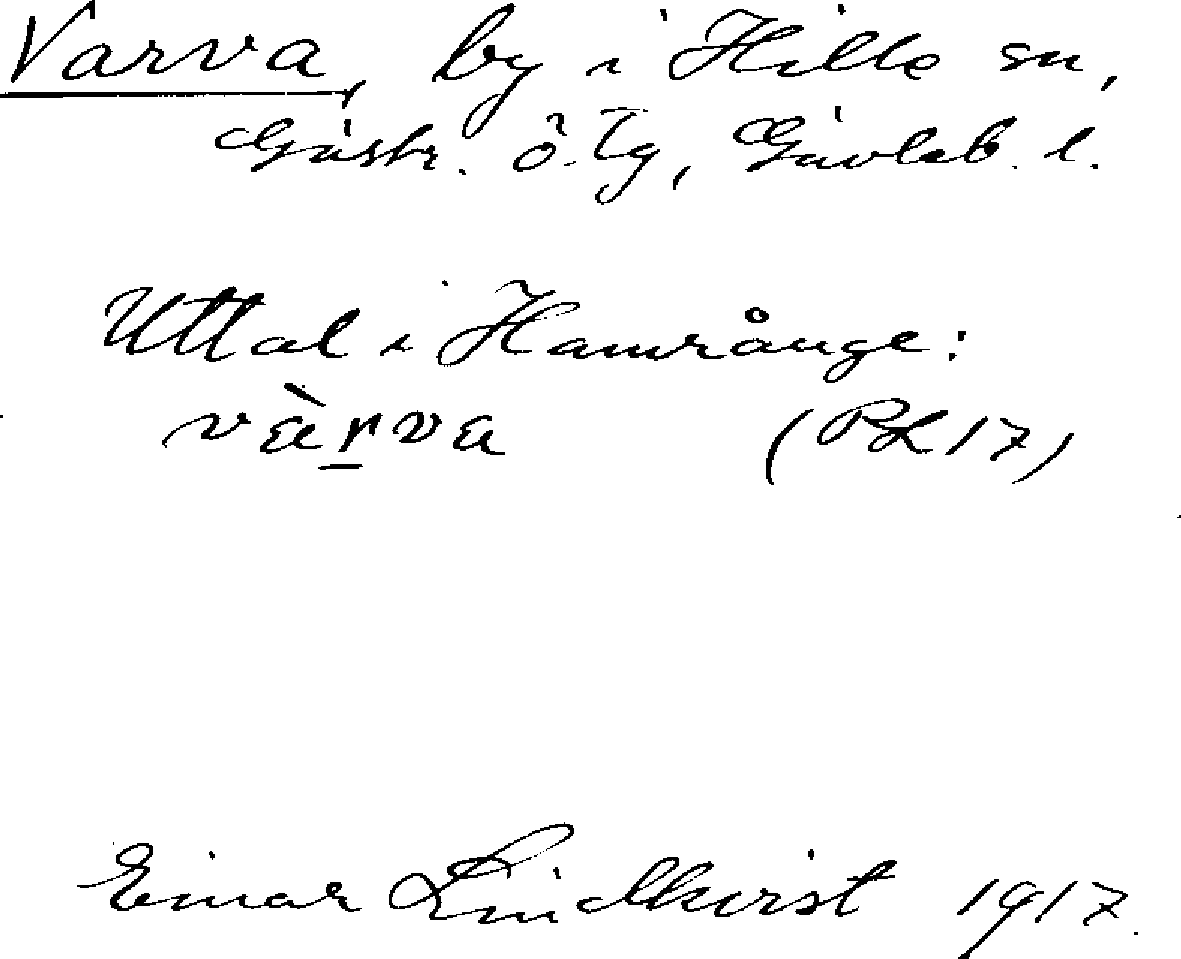 Varva, by i Hille sn,
Gästr. ö. tg, Gävleb. l.
Uttal i Hamrånge:
vàrva (PL 17)
Einar Lindkvist 1917.